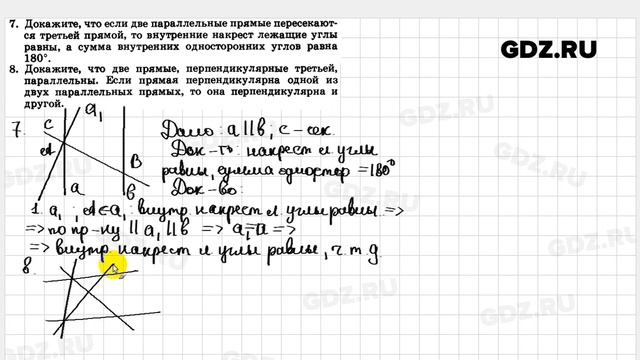 7. Докажите, что если две параллельные прямые пересекают-
ся третьей прямой, то внутренние накрест лежащие углы
равны, а сумма внутренних односторонних углов равна
180°.
8. Докажите, что две прямые, перпендикулярные третьей,
параллельны. Если прямая перпендикулярна одной из
двух параллельных прямых, то она перпендикулярна и
другой.
GDZ.RU
7.
c
a₁
A
B
a
b
Дано: a || b; c - сек.
Док-ть: накрест л углы
равны, сумма одностор = 180°
Док-во:
1. a₁; A ∈ a₁; внутр. накрест л. углы равны =>
=> по пр-ку || a₁ || b => a₁ = a =>
=> внутр накрест л углы равны, ч.т.д.
8.